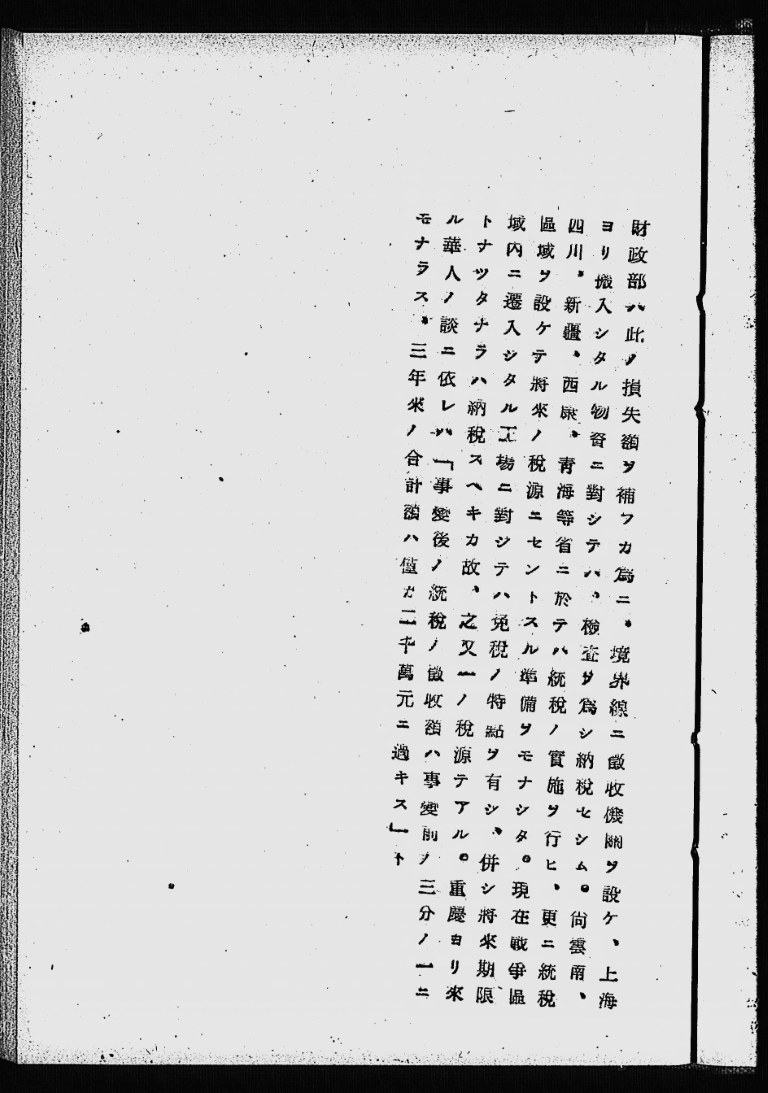 財政部ハ此ノ損失額ヲ補フカ爲ニ、境界線ニ徵收機關ヲ設ケ、上海
ヨリ搬入シタル物資ニ對シテハ、檢查ヲ爲シ納稅セシム。尙雲南、
四川、新疆、西康、青海等省ニ於テハ統稅ノ實施ヲ行ヒ、更ニ統稅
區域ヲ設ケテ將來ノ稅源ニセントスル準備ヲモナシタ。現在戰爭區
域內ニ遷入シタル工場ニ對シテハ免稅ノ特點ヲ有シ、併シ將來期限
トナツタナラハ納稅スヘキカ故、之又一ノ稅源テアル。重慶ヨリ來
ル華人ノ談ニ依レハ「事變後ノ統稅ノ徵收額ハ事變前ノ三分ノ一ニ
モナラス、三年來ノ合計額ハ僅カ二千萬元ニ過キス」ト